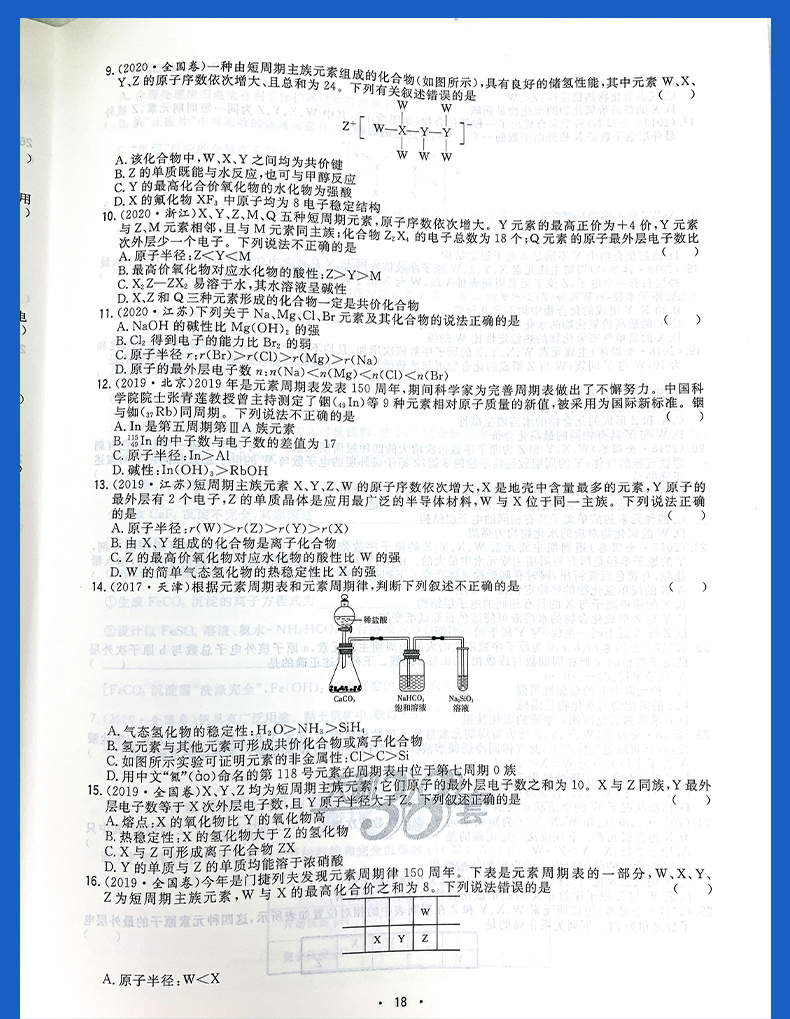 9.(2020·全国卷)一种由短周期主族元素组成的化合物(如图所示),具有良好的储氢性能,其中元素 W、X、
Y、Z的原子序数依次增大、且总和为 24。下列有关叙述错误的是 ( )
W W
Z⁺[ W—X—Y—Y ]⁻
W W W
A.该化合物中,W、X、Y 之间均为共价键
B.Z的单质既能与水反应,也可与甲醇反应
C.Y 的最高化合价氧化物的水化物为强酸
D.X 的氟化物 XF₃ 中原子均为 8 电子稳定结构
10.(2020·浙江)X、Y、Z、M、Q 五种短周期元素,原子序数依次增大。Y 元素的最高正价为+4 价,Y 元素
与 Z、M 元素相邻,且与 M 元素同主族;化合物 Z₂X₄ 的电子总数为 18 个;Q 元素的原子最外层电子数比
次外层少一个电子。下列说法不正确的是 ( )
A.原子半径:Z<Y<M
B.最高价氧化物对应水化物的酸性:Z>Y>M
C.X₂Z—ZX₂ 易溶于水,其水溶液呈碱性
D.X、Z 和 Q 三种元素形成的化合物一定是共价化合物
11.(2020·江苏)下列关于 Na、Mg、Cl、Br 元素及其化合物的说法正确的是 ( )
A.NaOH 的碱性比 Mg(OH)₂ 的强
B.Cl₂ 得到电子的能力比 Br₂ 的弱
C.原子半径 r:r(Br)>r(Cl)>r(Mg)>r(Na)
D.原子的最外层电子数 n:n(Na)<n(Mg)<n(Cl)<n(Br)
12.(2019·北京)2019 年是元素周期表发表 150 周年,期间科学家为完善周期表做出了不懈努力。中国科
学院院士张青莲教授曾主持测定了铟(₄₉In)等 9 种元素相对原子质量的新值,被采用为国际新标准。铟
与铷(₃₇Rb)同周期。下列说法不正确的是 ( )
A.In 是第五周期第ⅢA 族元素
B.¹¹⁵₄₉In 的中子数与电子数的差值为 17
C.原子半径:In>Al
D.碱性:In(OH)₃>RbOH
13.(2019·江苏)短周期主族元素 X、Y、Z、W 的原子序数依次增大,X 是地壳中含量最多的元素,Y 原子的
最外层有 2 个电子,Z 的单质晶体是应用最广泛的半导体材料,W 与 X 位于同一主族。下列说法正确
的是 ( )
A.原子半径:r(W)>r(Z)>r(Y)>r(X)
B.由 X、Y 组成的化合物是离子化合物
C.Z 的最高价氧化物对应水化物的酸性比 W 的强
D.W 的简单气态氢化物的热稳定性比 X 的强
14.(2017·天津)根据元素周期表和元素周期律,判断下列叙述不正确的是 ( )
稀盐酸
CaCO₃ NaHCO₃ Na₂SiO₃
饱和溶液 溶液
A.气态氢化物的稳定性:H₂O>NH₃>SiH₄
B.氢元素与其他元素可形成共价化合物或离子化合物
C.如图所示实验可证明元素的非金属性:Cl>C>Si
D.用中文“鿫”(ào)命名的第 118 号元素在周期表中位于第七周期 0 族
15.(2019·全国卷)X、Y、Z 均为短周期主族元素,它们原子的最外层电子数之和为 10。X 与 Z 同族,Y 最外
层电子数等于 X 次外层电子数,且 Y 原子半径大于 Z。下列叙述正确的是 ( )
A.熔点:X 的氧化物比 Y 的氧化物高
B.热稳定性:X 的氢化物大于 Z 的氢化物
C.X 与 Z 可形成离子化合物 ZX
D.Y 的单质与 Z 的单质均能溶于浓硝酸
16.(2019·全国卷)今年是门捷列夫发现元素周期律 150 周年。下表是元素周期表的一部分,W、X、Y、
Z 为短周期主族元素,W 与 X 的最高化合价之和为 8。下列说法错误的是 ( )
W
X Y Z
A.原子半径:W<X
· 18 ·